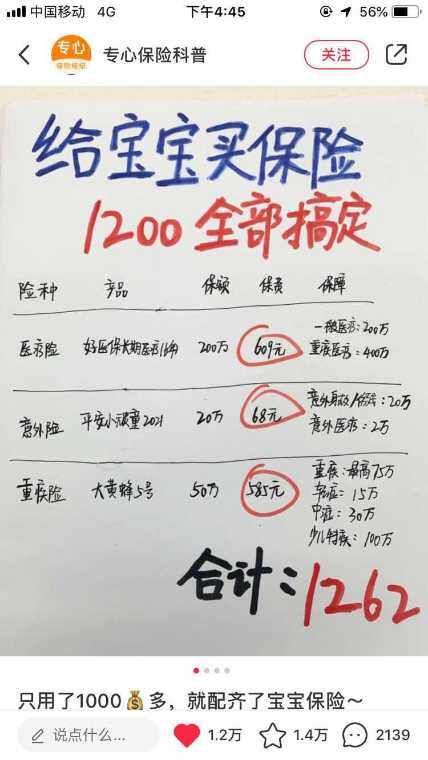 中国移动 4G 下午4:45 56%
专心
专心保险科普 关注
给宝宝买保险
1200全部搞定
险种 产品 保额 保费 保障
医疗险 好医保长期医疗 200万 609元 一般医疗:200万
重疾医疗:400万
意外险 平安小顽童2021 20万 68元 意外身故/伤残:20万
意外医疗:2万
重疾险 大黄蜂5号 50万 585元 重疾:最高75万
轻症:15万
中症:30万
少儿特疾:100万
合计:1262
只用了1000💰多，就配齐了宝宝保险～
说点什么... 1.2万 1.4万 2139